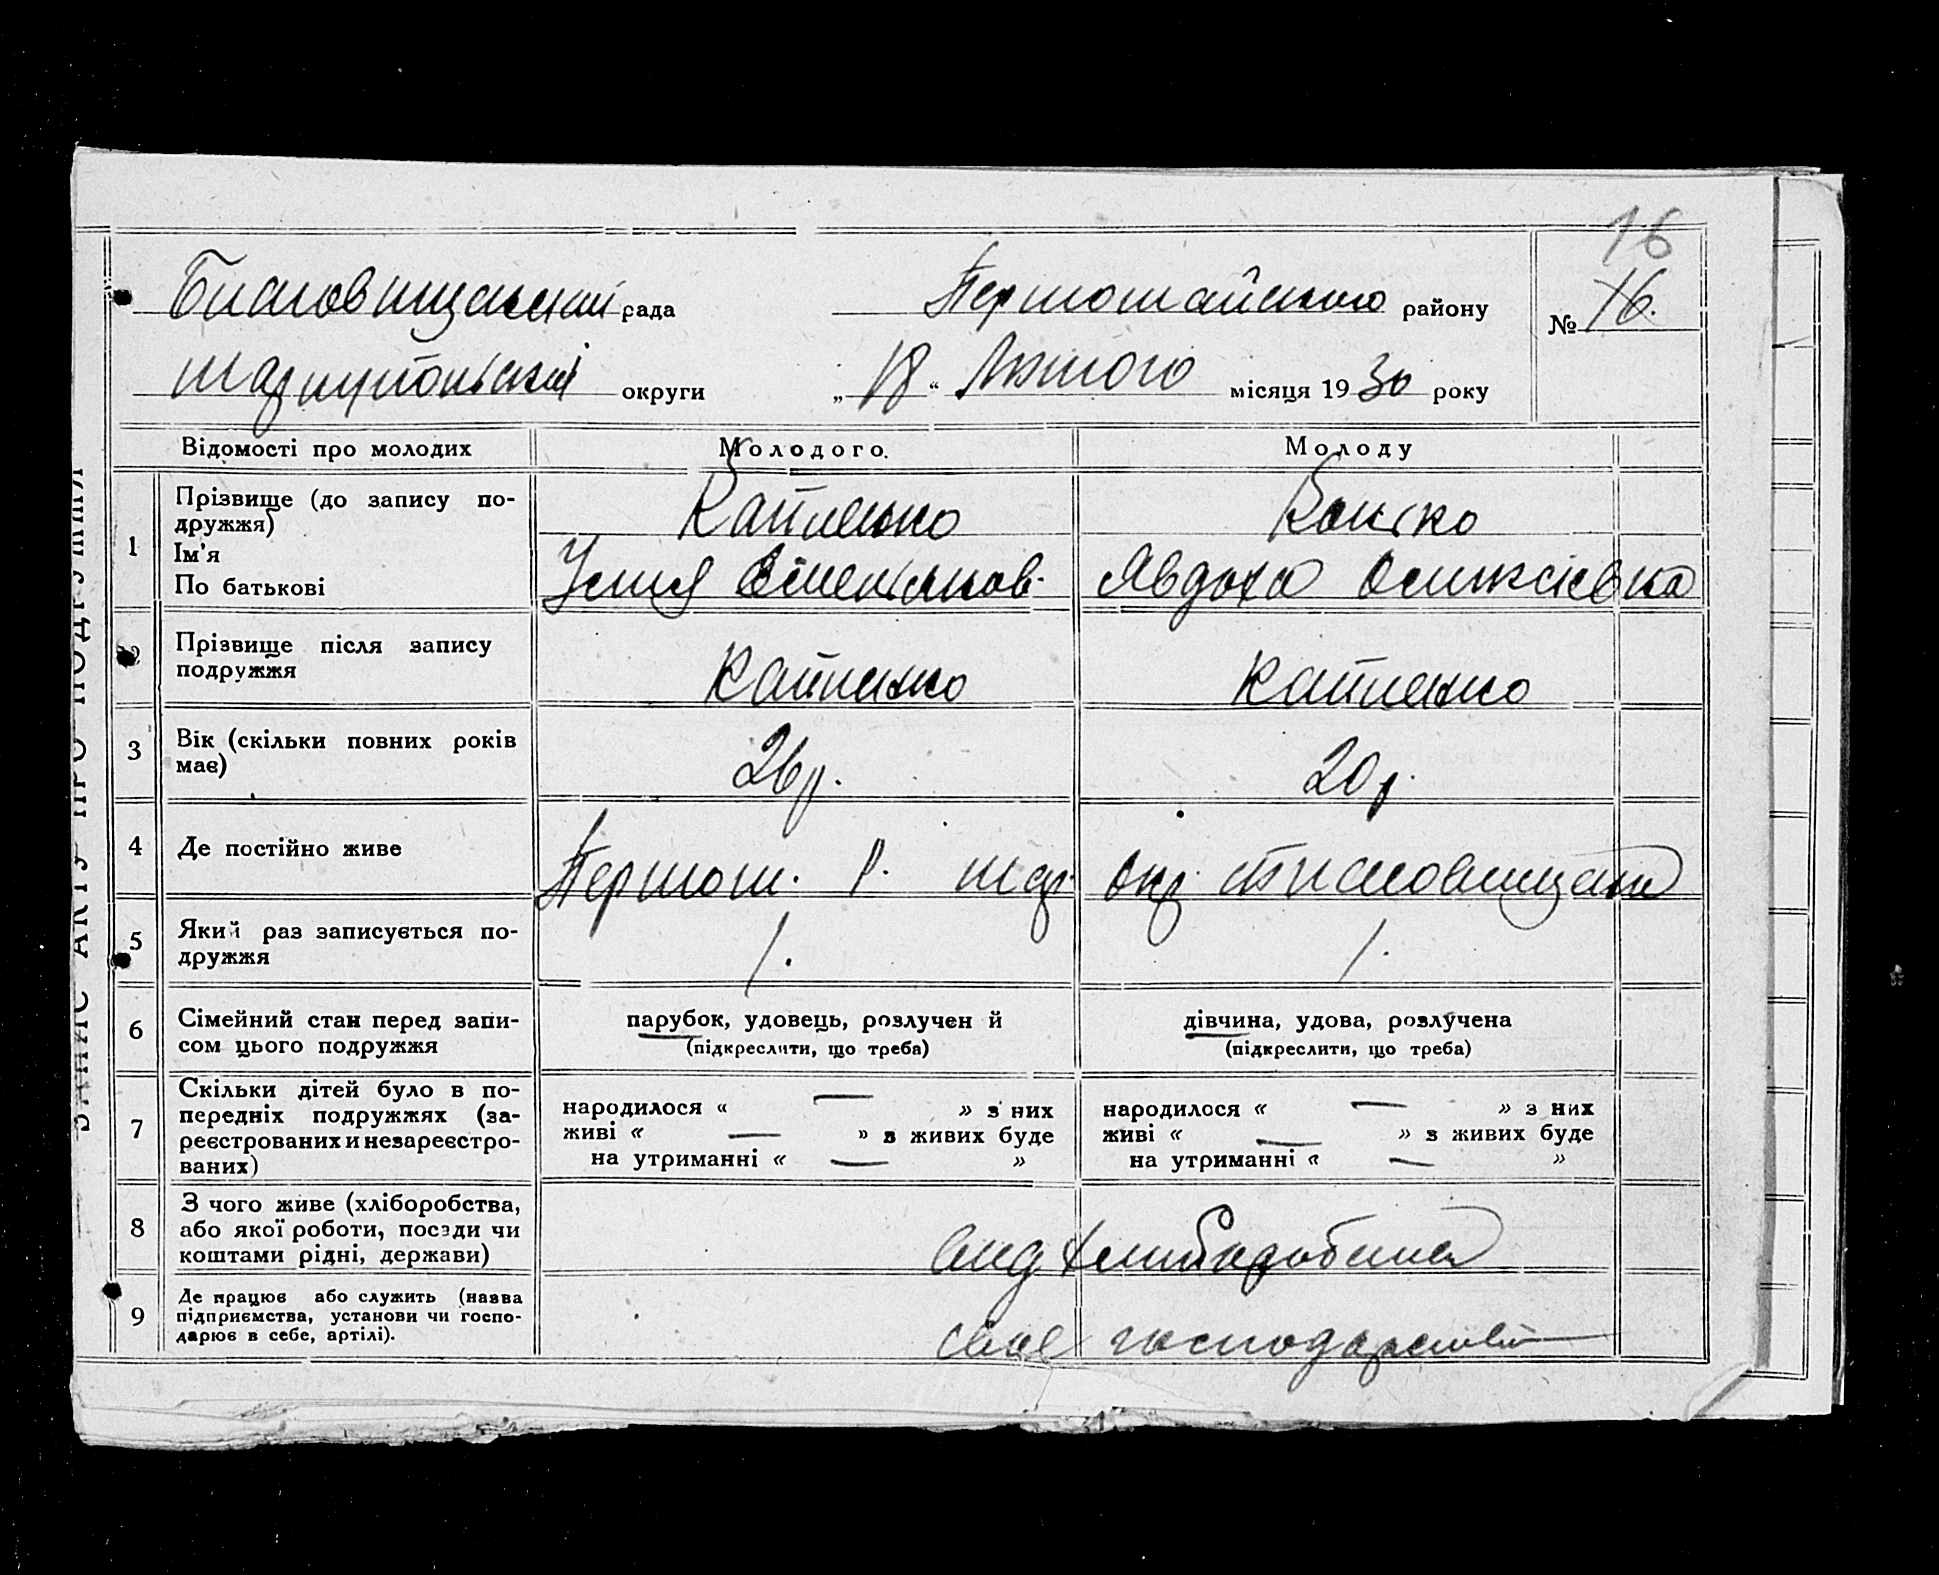 16
Благовищенський рада Першомайського району № 16.
Маріупольській округи „ 18 “ Лютого місяця 1930 року
Відомості про молодих Молодого. Молоду
1 Прізвище (до запису по-
дружжя)
Ім'я
По батькові
Капленко
Явдоха
2 Прізвище після запису
подружжя
Капленко Капленко
3 Вік (скільки повних років
має)
26 р. 20 р.
4 Де постійно живе
Першом. Р. Мар. Окр.
5 Який раз записується по-
дружжя
1. 1.
6 Сімейний стан перед запи-
сом цього подружжя
парубок, удовець, розлучен й
(підкреслити, що треба)
дівчина, удова, розлучена
(підкреслити, що треба)
7 Скільки дітей було в по-
передніх подружжях (за-
реєстрованих и незареєстро-
ваних)
народилося « — » з них
живі « — » з живих буде
на утриманні « — »
народилося « — » з них
живі « — » з живих буде
на утриманні « — »
8 З чого живе (хліборобства,
або якої роботи, посади чи
коштами рідні, держави)
9 Де працює або служить (назва
підприємства, установи чи госпо-
дарює в себе, артілі).
своє господарство
ЗАПИС АКТУ ПРО ПОДРУЖЖЯ